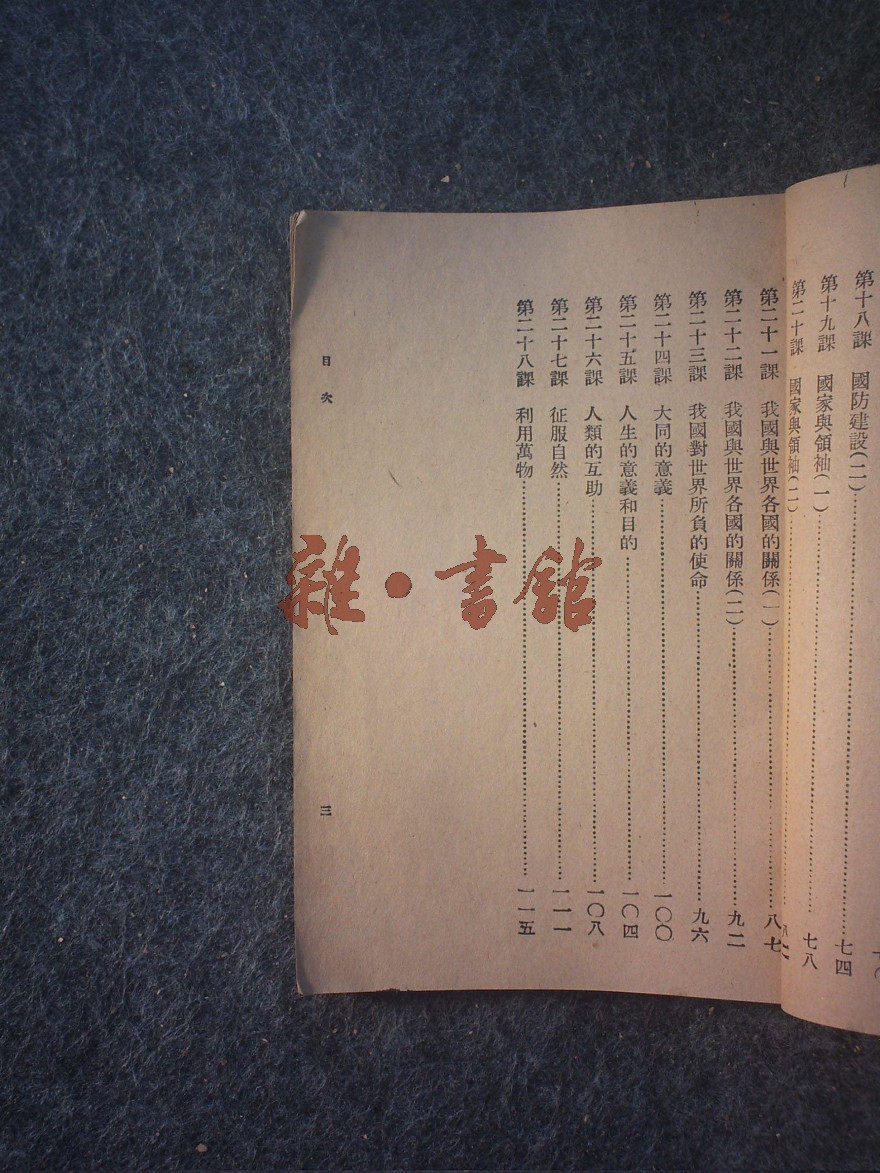 第十八課 國防建設(二)……七四
第十九課 國家與領袖(一)……七八
第二十課 國家與領袖(二)……八二
第二十一課 我國與世界各國的關係(一)……八七
第二十二課 我國與世界各國的關係(二)……九二
第二十三課 我國對世界所負的使命……九六
第二十四課 大同的意義……一〇〇
第二十五課 人生的意義和目的……一〇四
第二十六課 人類的互助……一〇八
第二十七課 征服自然……一一一
第二十八課 利用萬物……一一五
目次
三
雜·書館